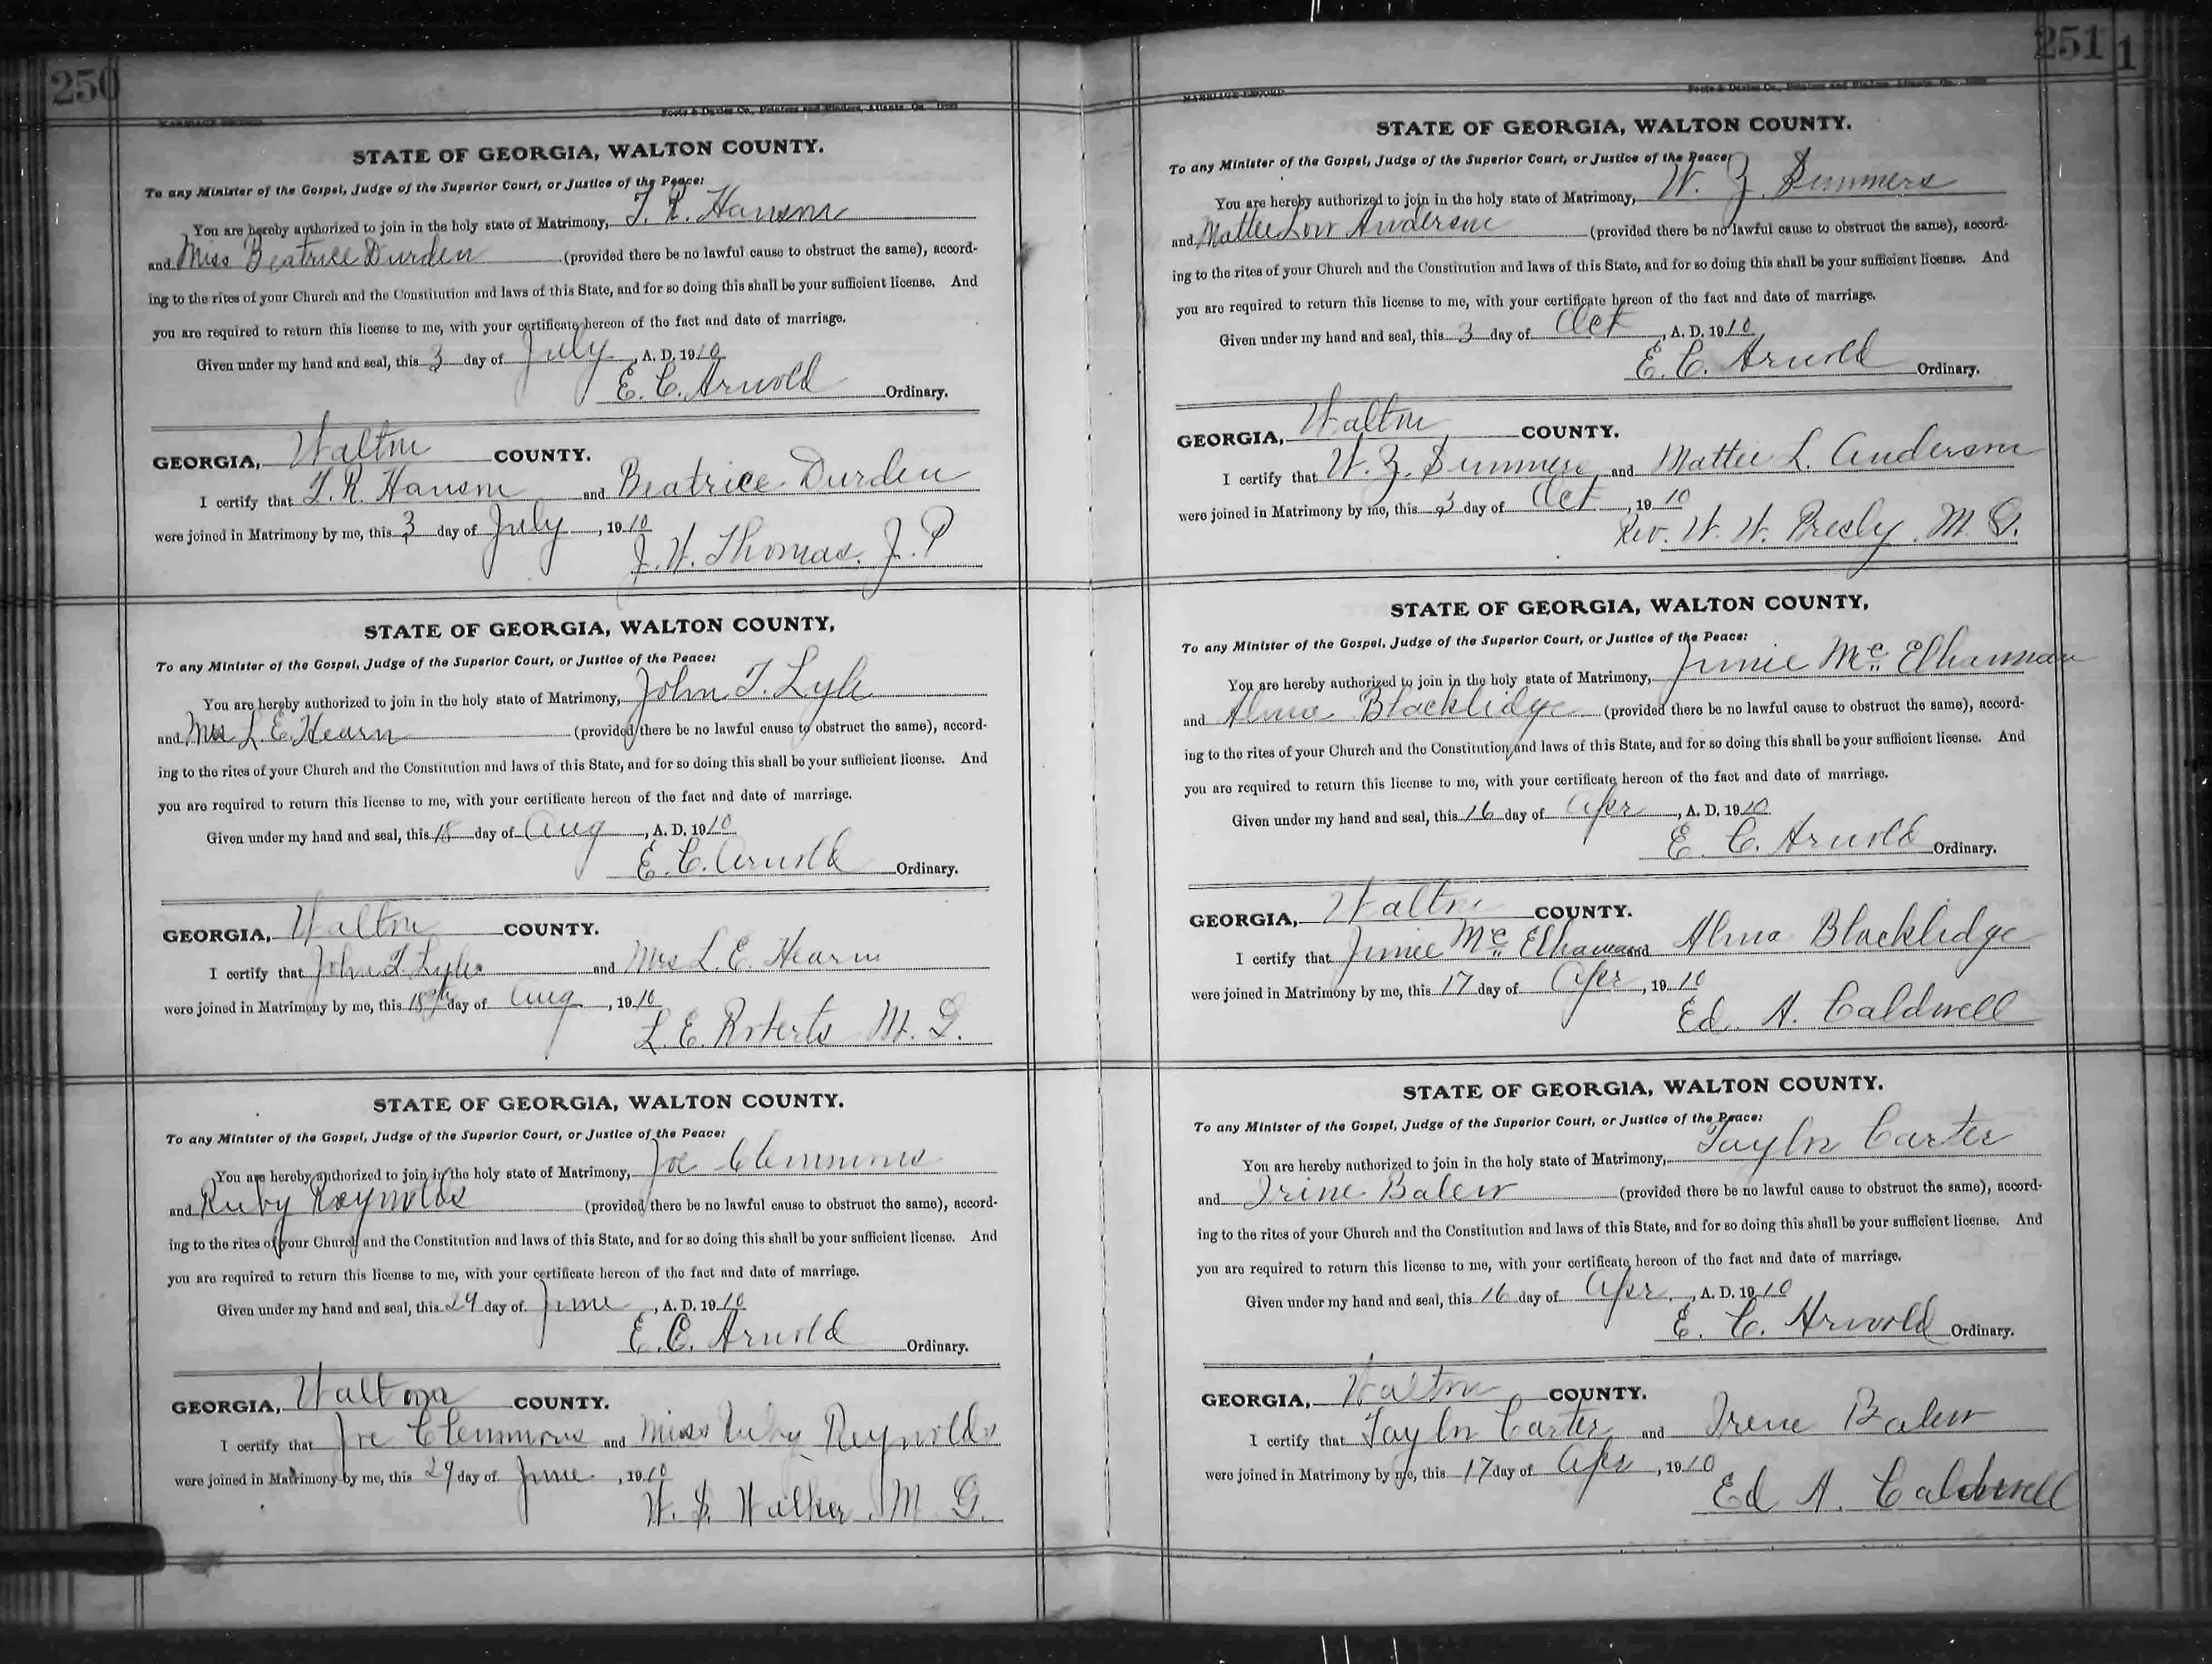 250
MARRIAGE RECORD
Foote & Davies Co., Printers and Binders, Atlanta, Ga.
STATE OF GEORGIA, WALTON COUNTY.
To any Minister of the Gospel, Judge of the Superior Court, or Justice of the Peace:
You are hereby authorized to join in the holy state of Matrimony, T. R. Hanson
and Miss Beatrice Durden (provided there be no lawful cause to obstruct the same), accord-
ing to the rites of your Church and the Constitution and laws of this State, and for so doing this shall be your sufficient license. And
you are required to return this license to me, with your certificate hereon of the fact and date of marriage.
Given under my hand and seal, this 3 day of July, A. D. 1910
E. C. Arnold Ordinary.
GEORGIA, Walton COUNTY.
I certify that T. R. Hanson and Beatrice Durden
were joined in Matrimony by me, this 3 day of July, 1910
J. W. Thomas. J. P
STATE OF GEORGIA, WALTON COUNTY,
To any Minister of the Gospel, Judge of the Superior Court, or Justice of the Peace:
You are hereby authorized to join in the holy state of Matrimony, John T. Lyle
and Mrs L. E. Hearn (provided there be no lawful cause to obstruct the same), accord-
ing to the rites of your Church and the Constitution and laws of this State, and for so doing this shall be your sufficient license. And
you are required to return this license to me, with your certificate hereon of the fact and date of marriage.
Given under my hand and seal, this 18 day of Aug, A. D. 1910
E. C. Arnold Ordinary.
GEORGIA, Walton COUNTY.
I certify that John T. Lyle and Mrs L. E. Hearn
were joined in Matrimony by me, this 18th day of Aug, 1910
L. E. Roberts M. G.
STATE OF GEORGIA, WALTON COUNTY.
To any Minister of the Gospel, Judge of the Superior Court, or Justice of the Peace:
You are hereby authorized to join in the holy state of Matrimony, Joe Clemmons
and Ruby Reynolds (provided there be no lawful cause to obstruct the same), accord-
ing to the rites of your Church and the Constitution and laws of this State, and for so doing this shall be your sufficient license. And
you are required to return this license to me, with your certificate hereon of the fact and date of marriage.
Given under my hand and seal, this 29 day of June, A. D. 1910
E. C. Arnold Ordinary.
GEORGIA, Walton COUNTY.
I certify that Joe Clemmons and Miss Ruby Reynolds
were joined in Matrimony by me, this 29 day of June, 1910
W. S. Walker. M. G.
251
1
MARRIAGE RECORD
Foote & Davies Co., Printers and Binders, Atlanta, Ga.
STATE OF GEORGIA, WALTON COUNTY.
To any Minister of the Gospel, Judge of the Superior Court, or Justice of the Peace:
You are hereby authorized to join in the holy state of Matrimony, W. Z. Summers
and Mattie Lou Anderson (provided there be no lawful cause to obstruct the same), accord-
ing to the rites of your Church and the Constitution and laws of this State, and for so doing this shall be your sufficient license. And
you are required to return this license to me, with your certificate hereon of the fact and date of marriage.
Given under my hand and seal, this 3 day of Oct, A. D. 1910
E. C. Arnold Ordinary.
GEORGIA, Walton COUNTY.
I certify that W. Z. Summers and Mattie L. Anderson
were joined in Matrimony by me, this 3 day of Oct, 1910
Rev. W. W. Presly. M. G.
STATE OF GEORGIA, WALTON COUNTY,
To any Minister of the Gospel, Judge of the Superior Court, or Justice of the Peace:
You are hereby authorized to join in the holy state of Matrimony, Jimie Mc Elhannan
and Alma Blacklidge (provided there be no lawful cause to obstruct the same), accord-
ing to the rites of your Church and the Constitution and laws of this State, and for so doing this shall be your sufficient license. And
you are required to return this license to me, with your certificate hereon of the fact and date of marriage.
Given under my hand and seal, this 16 day of Apr, A. D. 1910
E. C. Arnold Ordinary.
GEORGIA, Walton COUNTY.
I certify that Jimie Mc Elhannan and Alma Blacklidge
were joined in Matrimony by me, this 17 day of Apr, 1910
Ed A. Caldwell
STATE OF GEORGIA, WALTON COUNTY.
To any Minister of the Gospel, Judge of the Superior Court, or Justice of the Peace:
You are hereby authorized to join in the holy state of Matrimony, Taylor Carter
and Irine Balew (provided there be no lawful cause to obstruct the same), accord-
ing to the rites of your Church and the Constitution and laws of this State, and for so doing this shall be your sufficient license. And
you are required to return this license to me, with your certificate hereon of the fact and date of marriage.
Given under my hand and seal, this 16 day of Apr., A. D. 1910
E. C. Arnold Ordinary.
GEORGIA, Walton COUNTY.
I certify that Taylor Carter and Irene Balew
were joined in Matrimony by me, this 17 day of Apr, 1910
Ed A. Caldwell